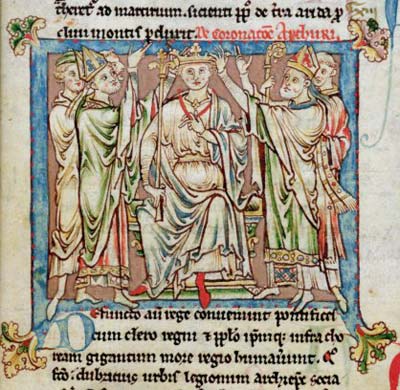 theret ad martirium. sicienti pplo de tra arida p
montis pduxit. De coronacōe Arthuri.
Defuncto aū rege convenerunt pontifices
cum clero regni ⁊ pplo ipmq; infra cho
ream gigantum more regio humaverunt.
dubricius urbis legionum archiepc socia